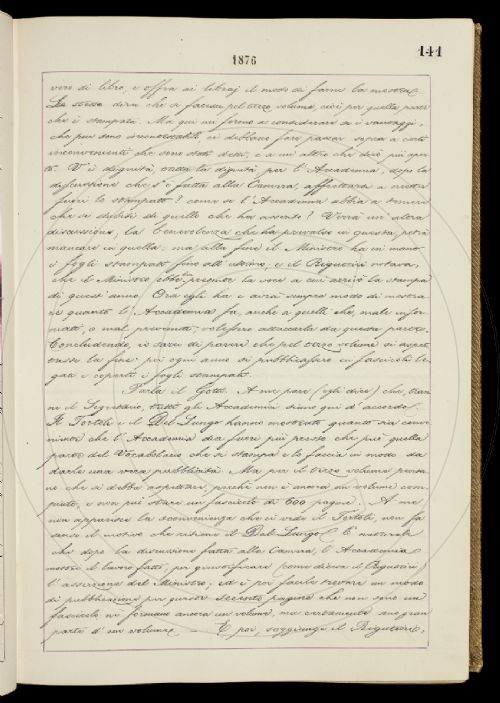 1876
141
vero di libro, e offra ai libraj il modo di farne la mostra.
Lo stesso dirà che si faccia pel terzo volume, cioè per quella parte
che è stampata. Ma qui mi fermo a considerare se i vantaggj,
che pur sono incontrastabili, ci debbano fare passar sopra a certi
inconvenienti che sono stati detti, e a un altro che dirò più aper-
to. V'è dignità, tutta la dignità per l'Accademia, dopo la
discussione che s'è fatta alla Camera, affrettarsi a metter
fuori lo stampato? come se l'Accademia abbia a temere
che si dubiti di quello che ha asserito? Verrà un'altra
discussione, la benevolenza che ha prevalso in questa potrà
mancare in quella: ma alla fine il Ministro ha in mano
i fogli stampati fino all'ultimo, e il Bigazzi notava,
che il Ministro ebbe presente la voce a cui arrivò la stampa
di quest'anno. Ora egli ha e avrà sempre modo di mostra-
re quanto l'Accademia fa, anche a quelli che, male infor-
mati, o mal prevenuti, volessero attaccarla da questa parte.
Concludendo, io sarei di parere che pel terzo volume si aspet-
tasse la fine: poi ogni anno si pubblicassero in fascicoli le-
gati e coperti i fogli stampati.
Parla il Gotti. A me pare (egli dice) che, tran-
ne il Segretario, tutti gli Accademici siamo qui d'accordo.
Il Tortoli e il Del Lungo hanno mostrato quanto sia conve-
niente che l'Accademia dia fuori più presto che può quella
parte del Vocabolario che si stampa e lo faccia in modo da
darle una vera pubblicità. Ma per il terzo volume pensa-
no che si debba aspettare, perchè non è ancora un volume com-
piuto, e non può stare un fascicolo di 600 pagine. A me
non apparisce la sconvenienza che ci vede il Tortoli, non fa
senso il motivo che ritiene il Del Lungo. È naturale
che dopo la discussione fatta alla Camera, l'Accademia
mostri il lavoro fatto, per giustificare come diceva il Bigazzi
l'asserzione del Ministro, ed è più facile trovare un modo
di pubblicazione per queste secento pagine che non sono un
fascicolo nè formano ancora un volume, ma certamente son gran
parte d'un volume. — E poi, soggiunge il Rigutini,